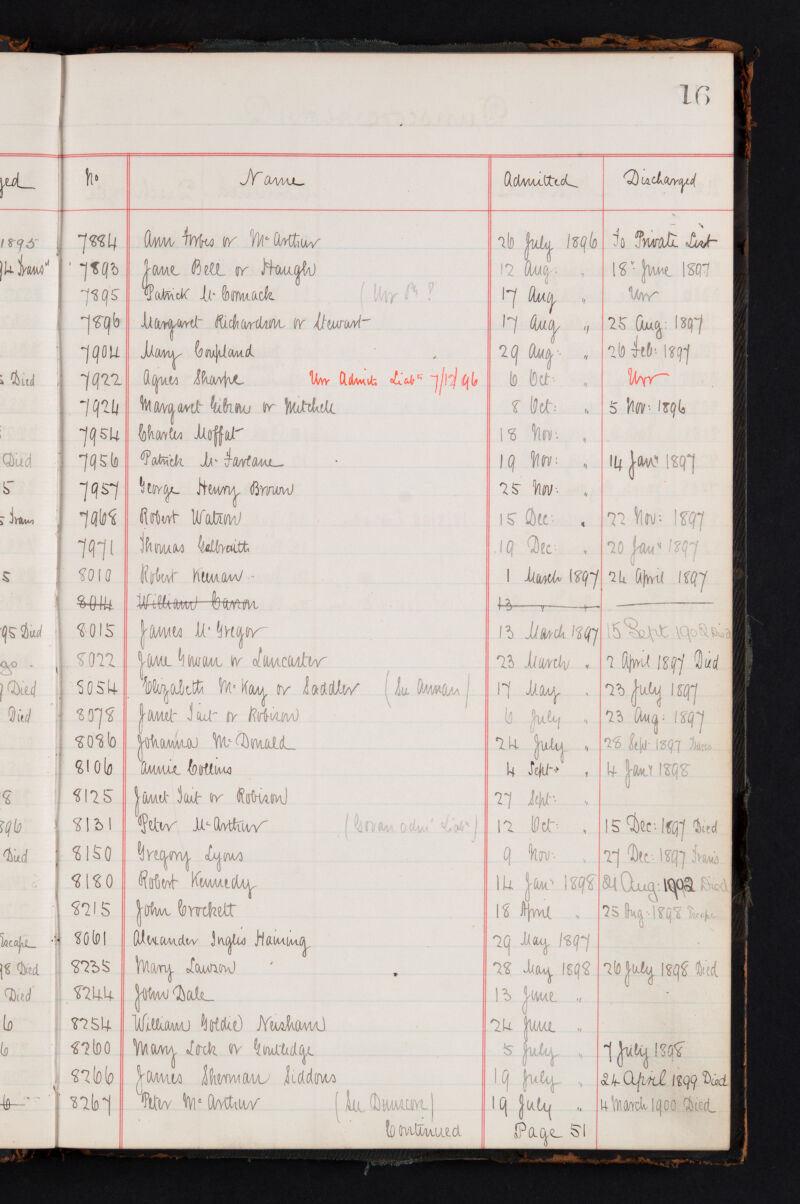 16
No Name Admitted Discharged
1895 7884 Ann Forbes or McArthur 26 July 1896 To Private List
Trans 7893 Jane Bell or Haugh 12 Aug: " 18 June 1897
7895 Patrick McCormack 17 Aug " Unr
7896 Margaret Richardson or Stewart 17 Aug " 25 Aug: 1897
7904 Mary Coupland 29 Aug: " 26 Feb: 1897
Died 7922 Agnes Sharpe Unr Admits Liaby 7/12/96 6 Oct: " Unr
7924 Margaret Gibson or Mitchell 8 Oct: " 5 Nov: 1896
7954 Charles Moffat 18 Nov: "
Died 7956 Patrick McFarlane 19 Nov: " 14 Jany 1897
5 7957 George Henry Brown 25 Nov: "
Trans 7968 Robert Watson 15 Dec: " 22 Nov: 1897
7971 Thomas Galbraith 19 Dec: " 20 Jany 1897
5 8010 Robert Keenan 1 March 1897 24 April 1897
8014 William Carson 13 " "
95 Died 8015 James McGregor 13 March 1897 15 Sept 1902 Died
8022 Jane Gowan or Lancaster 23 March " 2 April 1897 Died
Died 8054 Elizabeth McKay or Saddler (See Annan) 17 May " 23 July 1897
Died 8078 Janet Tait or Robison 6 July " 23 Aug: 1897
8086 Johanna McDonald 24 July " 28 Sept 1897 Trans
8106 Annie Collins 4 Sept " 4 Jany 1898
8 8125 Janet Tait or Robison 27 Sept: "
96 8131 Peter McArthur (Govan adm Liaby) 12 Oct: " 15 Dec: 1897 Died
Died 8150 Gregory Lyons 9 Nov: " 27 Dec: 1897 Trans
8180 Robert Kennedy 14 Jany 1898 31 Aug: 1902 Died
8215 John Crockett 18 April " 25 Aug: 1898 Escape
Escape 8061 Alexander Inglis Haining 29 May 1897
98 Died 8235 Mary Lawson 28 May 1898 26 July 1898 Died
Died 8244 John Dale 13 June "
6 8254 William Goldie Newsham 24 June "
6 8260 Mary Lock or Goulledge 5 July " 7 July 1898
8266 James Sherman Siddons 19 July " 24 April 1899 Died
8267 Peter McArthur (See Dunscore) 19 July " 4 March 1900 Died
Continued Page 51